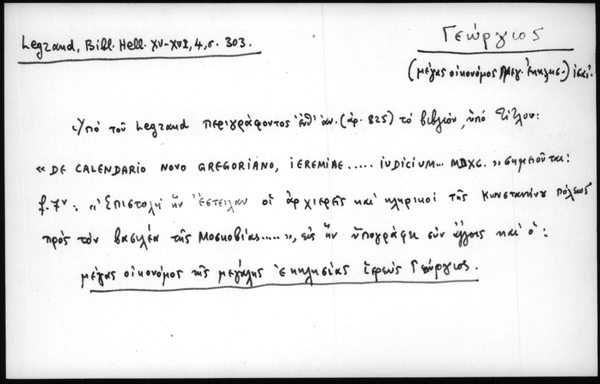 Legrand, Bibl. Hell. XV-XVI, 4, σ. 303.
Γεώργιος
(μέγας οἰκονόμος Μεγ. Ἐκκλησ.) ἱερ.
Ὑπό τοῦ Legrand περιγράφοντος ἐνθ' ἀν. (ἀρ. 825) τὸ βιβλίον, ὑπό τίτλον:
« DE CALENDARIO NOVO GREGORIANO, IEREMIAE ..... IUDICIUM... MDXC. » σημειοῦται:
f. 7ᵛ: « Ἐπιστολή ἥν ἔστειλαν οἱ ἀρχιερῆς καί κληρικοί τῆς Κωνσταντίνου Πόλεως
πρὸς τόν βασιλέα τῆς Μοσκοβίας..... », εἰς ἥν ὑπογράφει σύν ἄλλοις καί ὁ:
μέγας οἰκονόμος τῆς μεγάλης ἐκκλησίας ἱερεύς Γεώργιος.